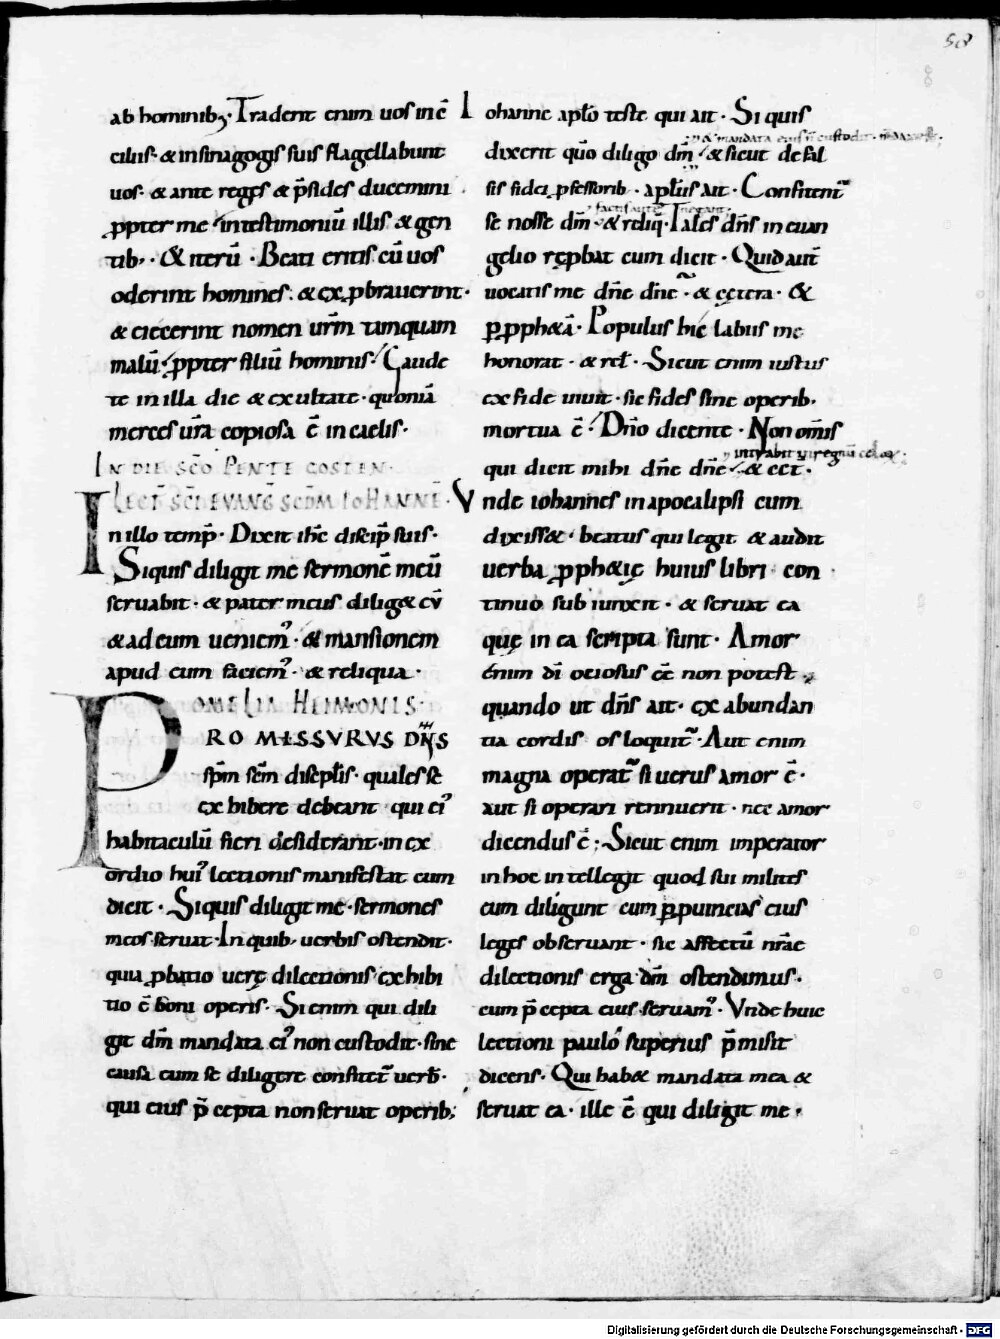 58
ab hominib; Tradent enim uos in c̄
ciliis · & in sinagogis suis flagellabunt
uos · & ante reges & p̄sides ducemini
ꝓpter me · in testimoniū illis & gen
tib; · & iterū · Beati eritis cū uos
oderint homines · & exꝓbrauerint ·
& eiecerint nomen ur̄m tamquam
malū · ꝓpter filiū hominis · Gaude
te in illa die & exultate · quoniā
merces ur̄a copiosa ē in caelis ·
IN DIE SC̄O PENTECOSTEN ·
LECT̄ SC̄I EVANḠ SEC̄DM IOHANNĒ ·
In illo temp̄ · Dixit ih̄c discip̄ suis ·
Siquis diligit me sermonē meū
seruabit · & pater meus dilig& eū
& ad eum ueniem᾽ · & mansionem
apud eum faciem᾽ · & reliqua ·
OMELIA HEIMONIS ·
PROMISSVRVS DN̄S
sp̄m sc̄m discipl̄is · quales se
exhibere debeant · qui ei᾽
habitaculū fieri desiderant · in ex
ordio hui᾽ lectionis manifestat cum
dicit · Siquis diligit me · sermones
meos seruat · In quib; uerbis ostendit ·
quia ꝓbatio uerę dilectionis exhibi
tio ē boni operis · Si enim qui dili
git dm̄ mandata ei᾽ non custodit · sine
causa eum se diligere confitet᷑ uerb̄ ·
qui eius p̄cepta non seruat operib;
Iohanne apl̄o teste qui ait · Si quis
& mandata eius n̄ custodit · m̄dax ē ·
dixerit qūo diligo dm̄ · & sicut de fal
sis fidei ꝓfessorib · apl̄us ait · Confitent᷑
factis aut̄ negant ·
se nosse dm̄ · & reliq · Tales dn̄s in euan
gelio reꝓbat cum dicit · Quid aut̄
uocatis me dn̄e dn̄e · & cętera · Et
ꝑ ꝓph&ā · Populus hic labiis me
honorat · & rel̄ · Sicut enim iustus
ex fide uiuit · sic fides sine operib ·
mortua ē · Dn̄o dicente · Non om̄is
intrabit in regnū celoꝝ ;
qui dicit mihi dn̄e dn̄e · & cęt ·
Vnde iohannes in apocalipsi cum
dixiss& · beatus qui legit & audit
uerba ꝓph&ię huius libri con
tinuo subiunxit · & seruat ea
quę in ea scripta sunt · Amor
enim dī ociosus ēē non potest
quando ut dn̄s ait · ex abundan
tia cordis os loquit᷑ · Aut enim
magna operat᷑ si uerus amor ē ·
aut si operari rennuerit · nec amor
dicendus ē ; Sicut enim imperator
in hoc intellegit quod sui milites
eum diligunt cum ꝑ ꝓuincias eius
leges obseruant · sic affectū nr̄ae
dilectionis erga dm̄ ostendimus ·
cum p̄cepta eius seruam᾽ · Vnde huic
lectioni paulo superius p̄misit
dicens · Qui hab& mandata mea &
seruat ea · ille ē qui diligit me ·
Digitalisierung gefördert durch die Deutsche Forschungsgemeinschaft - DFG